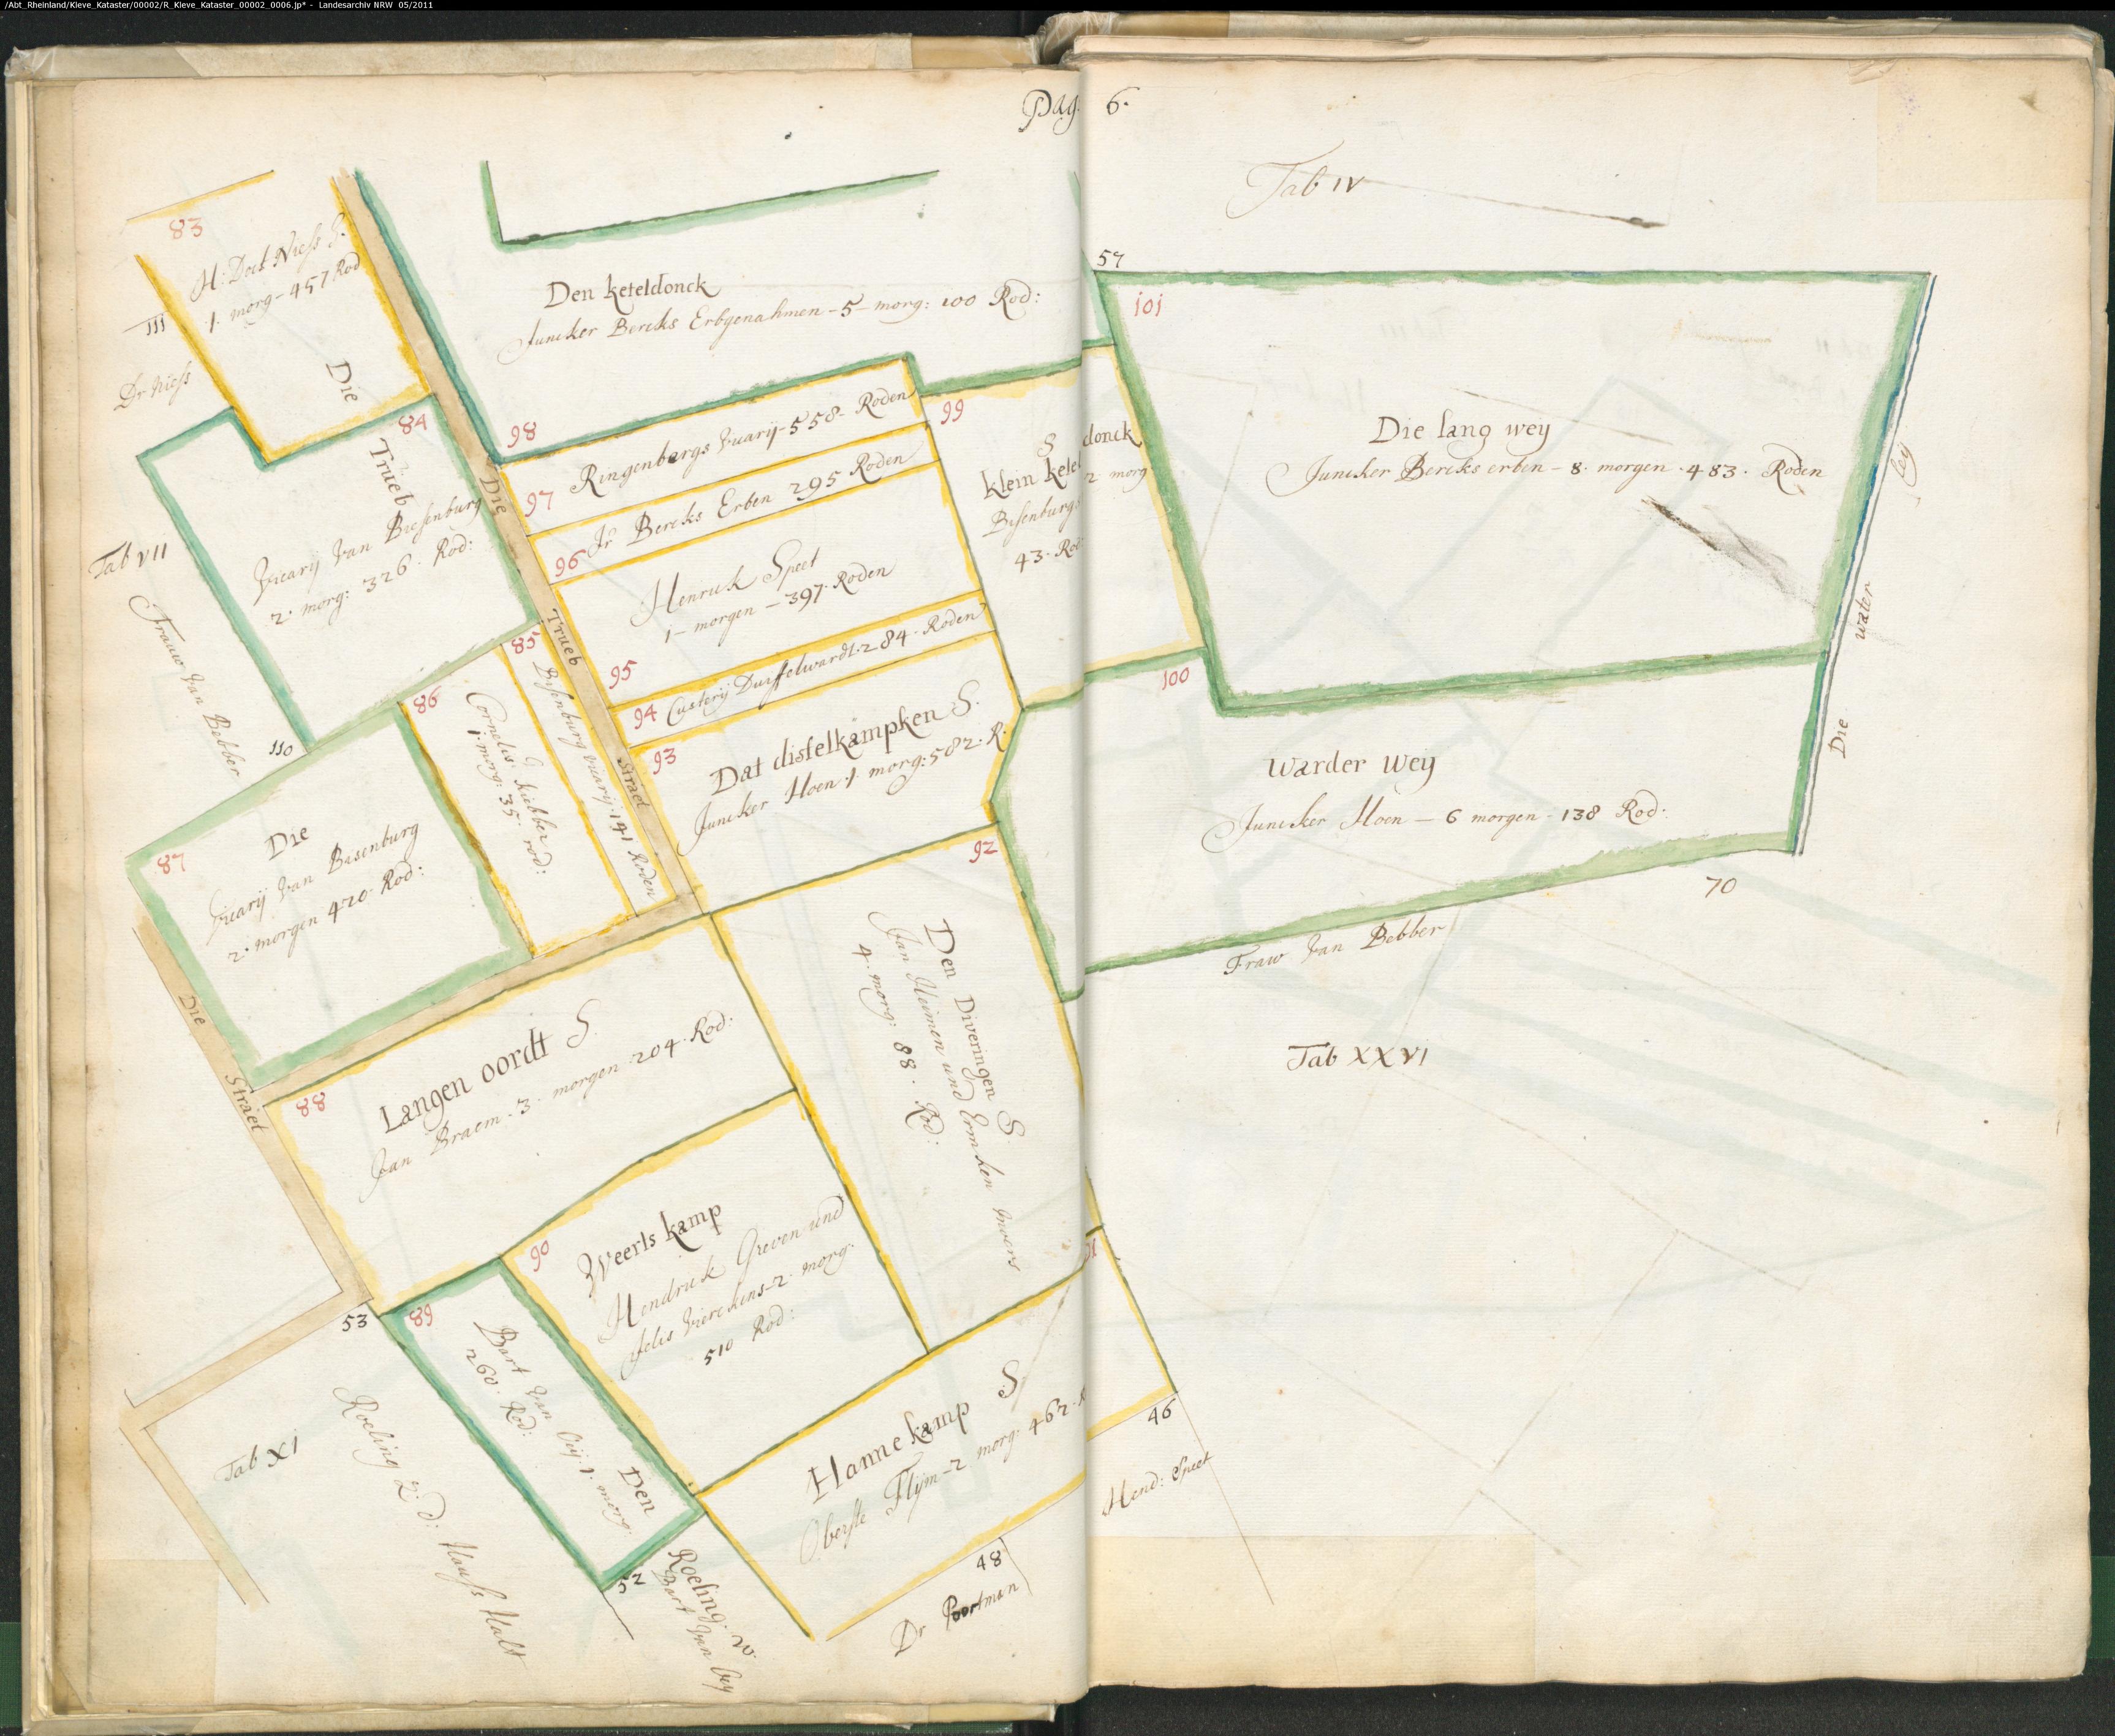 /Abt_Rheinland/Kleve_Kataster/00002/R_Kleve_Kataster_00002_0006.jp* - Landesarchiv NRW 05/2011
Pag: 6.
Tab IV
83
H: Doct Niess S.
1. morg - 457 Rod
111
Dr Niess
Die
84
Trueb
Vicarij Van Biesenburg
2. morg: 326. Rod:
Tab VII
Frauw Van Bebber
110
Den keteldonck
Juncker Bercks Erbgenahmen - 5 - morg: 100 Rod:
98
Ringenbergs Vicarij - 558 - Roden
97
Jr Bercks Erben 295 Roden
96
Henrick Speet
1 - morgen - 397. Roden
95
Custerij Duiffelwardt. 284. Roden
94
93
Dat distelkampken S.
Juncker Hoen. 1. morg: 582. R.
Die
Trueb
Straet
99
S
klein keteldonck
Bisenburgs 2 morg
43. Rod
57
101
Die lang wey
Juncker Bercks erben - 8. morgen. 483. Roden
ley
water
Die
100
Warder Weÿ
Juncker Hoen - 6 morgen - 138 Rod:
70
Fraw Van Bebber
Tab XXVI
85
Bisenburg Vicarij. 141 Roden
86
Cornelis
1. morg: 35. rod:
87
Die
Vicarij Van Bisenburg
2. morgen 420. Rod:
Die
Straet
88
Langen oordt S.
Jan Braem. 3. morgen. 204. Rod:
92
Den Diveringen S
Jan Heimen und Ermken mvers
4. morg: 88. Rod:
90
Weerts kamp
Hendrick Greven und
Jelis Vierckens - 2. morg.
510 Rod:
53
89
Bart Van Oeij 1. morg.
260. Rod:
Den
Tab XI
Roeling 2. d: Hauss Halt
52
Roeling. w.
Bart Van Oey
91
Hanne kamp S
Oberste Flijm - 2 morg. 462. R
46
Hend: Speet
48
Dr Poortman